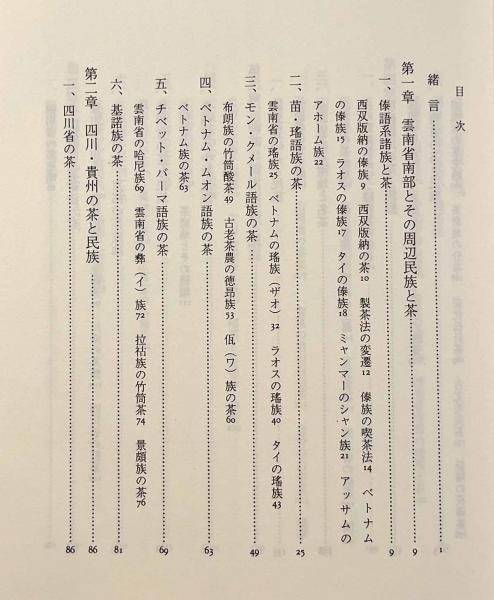 目次
緒言 1
第一章 雲南省南部とその周辺民族と茶 9
一、傣語系諸族と茶 9
西双版納の傣族9 西双版納の茶10 製茶法の変遷12 傣族の喫茶法14 ベトナム
の傣族15 ラオスの傣族17 タイの傣族18 ミャンマーのシャン族21 アッサムの
アホーム族22
二、苗・瑤語族の茶 25
雲南省の瑤族25 ベトナムの瑤族(ザオ)32 ラオスの瑤族40 タイの瑤族43
三、モン・クメール語族の茶 49
布朗族の竹筒酸茶49 古老茶農の徳昂族53 佤(ワ)族の茶60
四、ベトナム・ムオン語族の茶 63
ベトナム族の茶63
五、チベット・バーマ語族の茶 69
雲南省の哈尼族69 雲南省の彝(イ)族72 拉祜族の竹筒茶74 景頗族の茶76
六、基諾族の茶 81
第二章 四川・貴州の茶と民族 86
一、四川省の茶 86